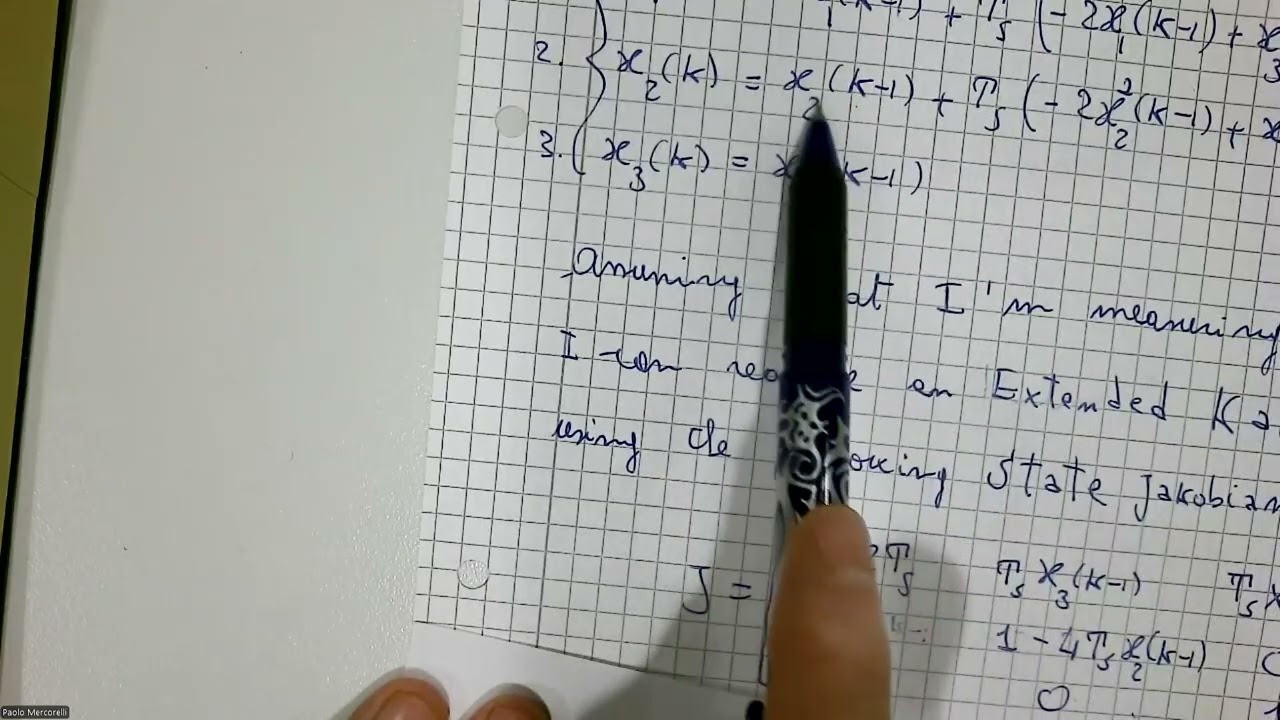 (k-1) + T_s (-2x_1(k-1) + x_3
2. { x_2(k) = x_2(k-1) + T_s (-2x_2^2(k-1) + x
3. x_3(k) = x k-1)
Assuming at I'm measuring
I can an Extended Ka
using de owing State Jakobian
J = T_s T_s x_3(k-1) T_s x
1 - 4T_s x_2(k-1)
0
Paolo Mercorelli